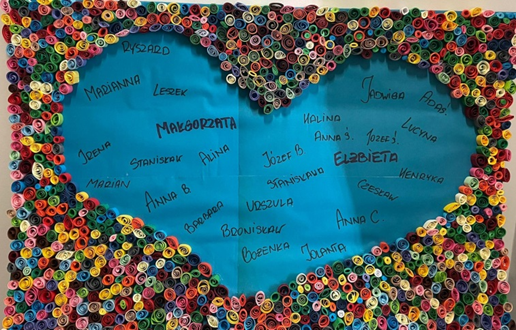 RYSZARD
MARIANNA
LESZEK
JADWIGA
ADAŚ
MAŁGORZATA
HALINA
LUCYNA
ANNA Ś.
JÓZEF Ś.
IRENA
STANISŁAW
ALINA
JÓZEF B
ELŻBIETA
HENRYKA
MARIAN
STANISŁAWA
CZESŁAW
ANNA B
BARBARA
URSZULA
ANNA C.
BRONISŁAW
BOŻENKA
JOLANTA